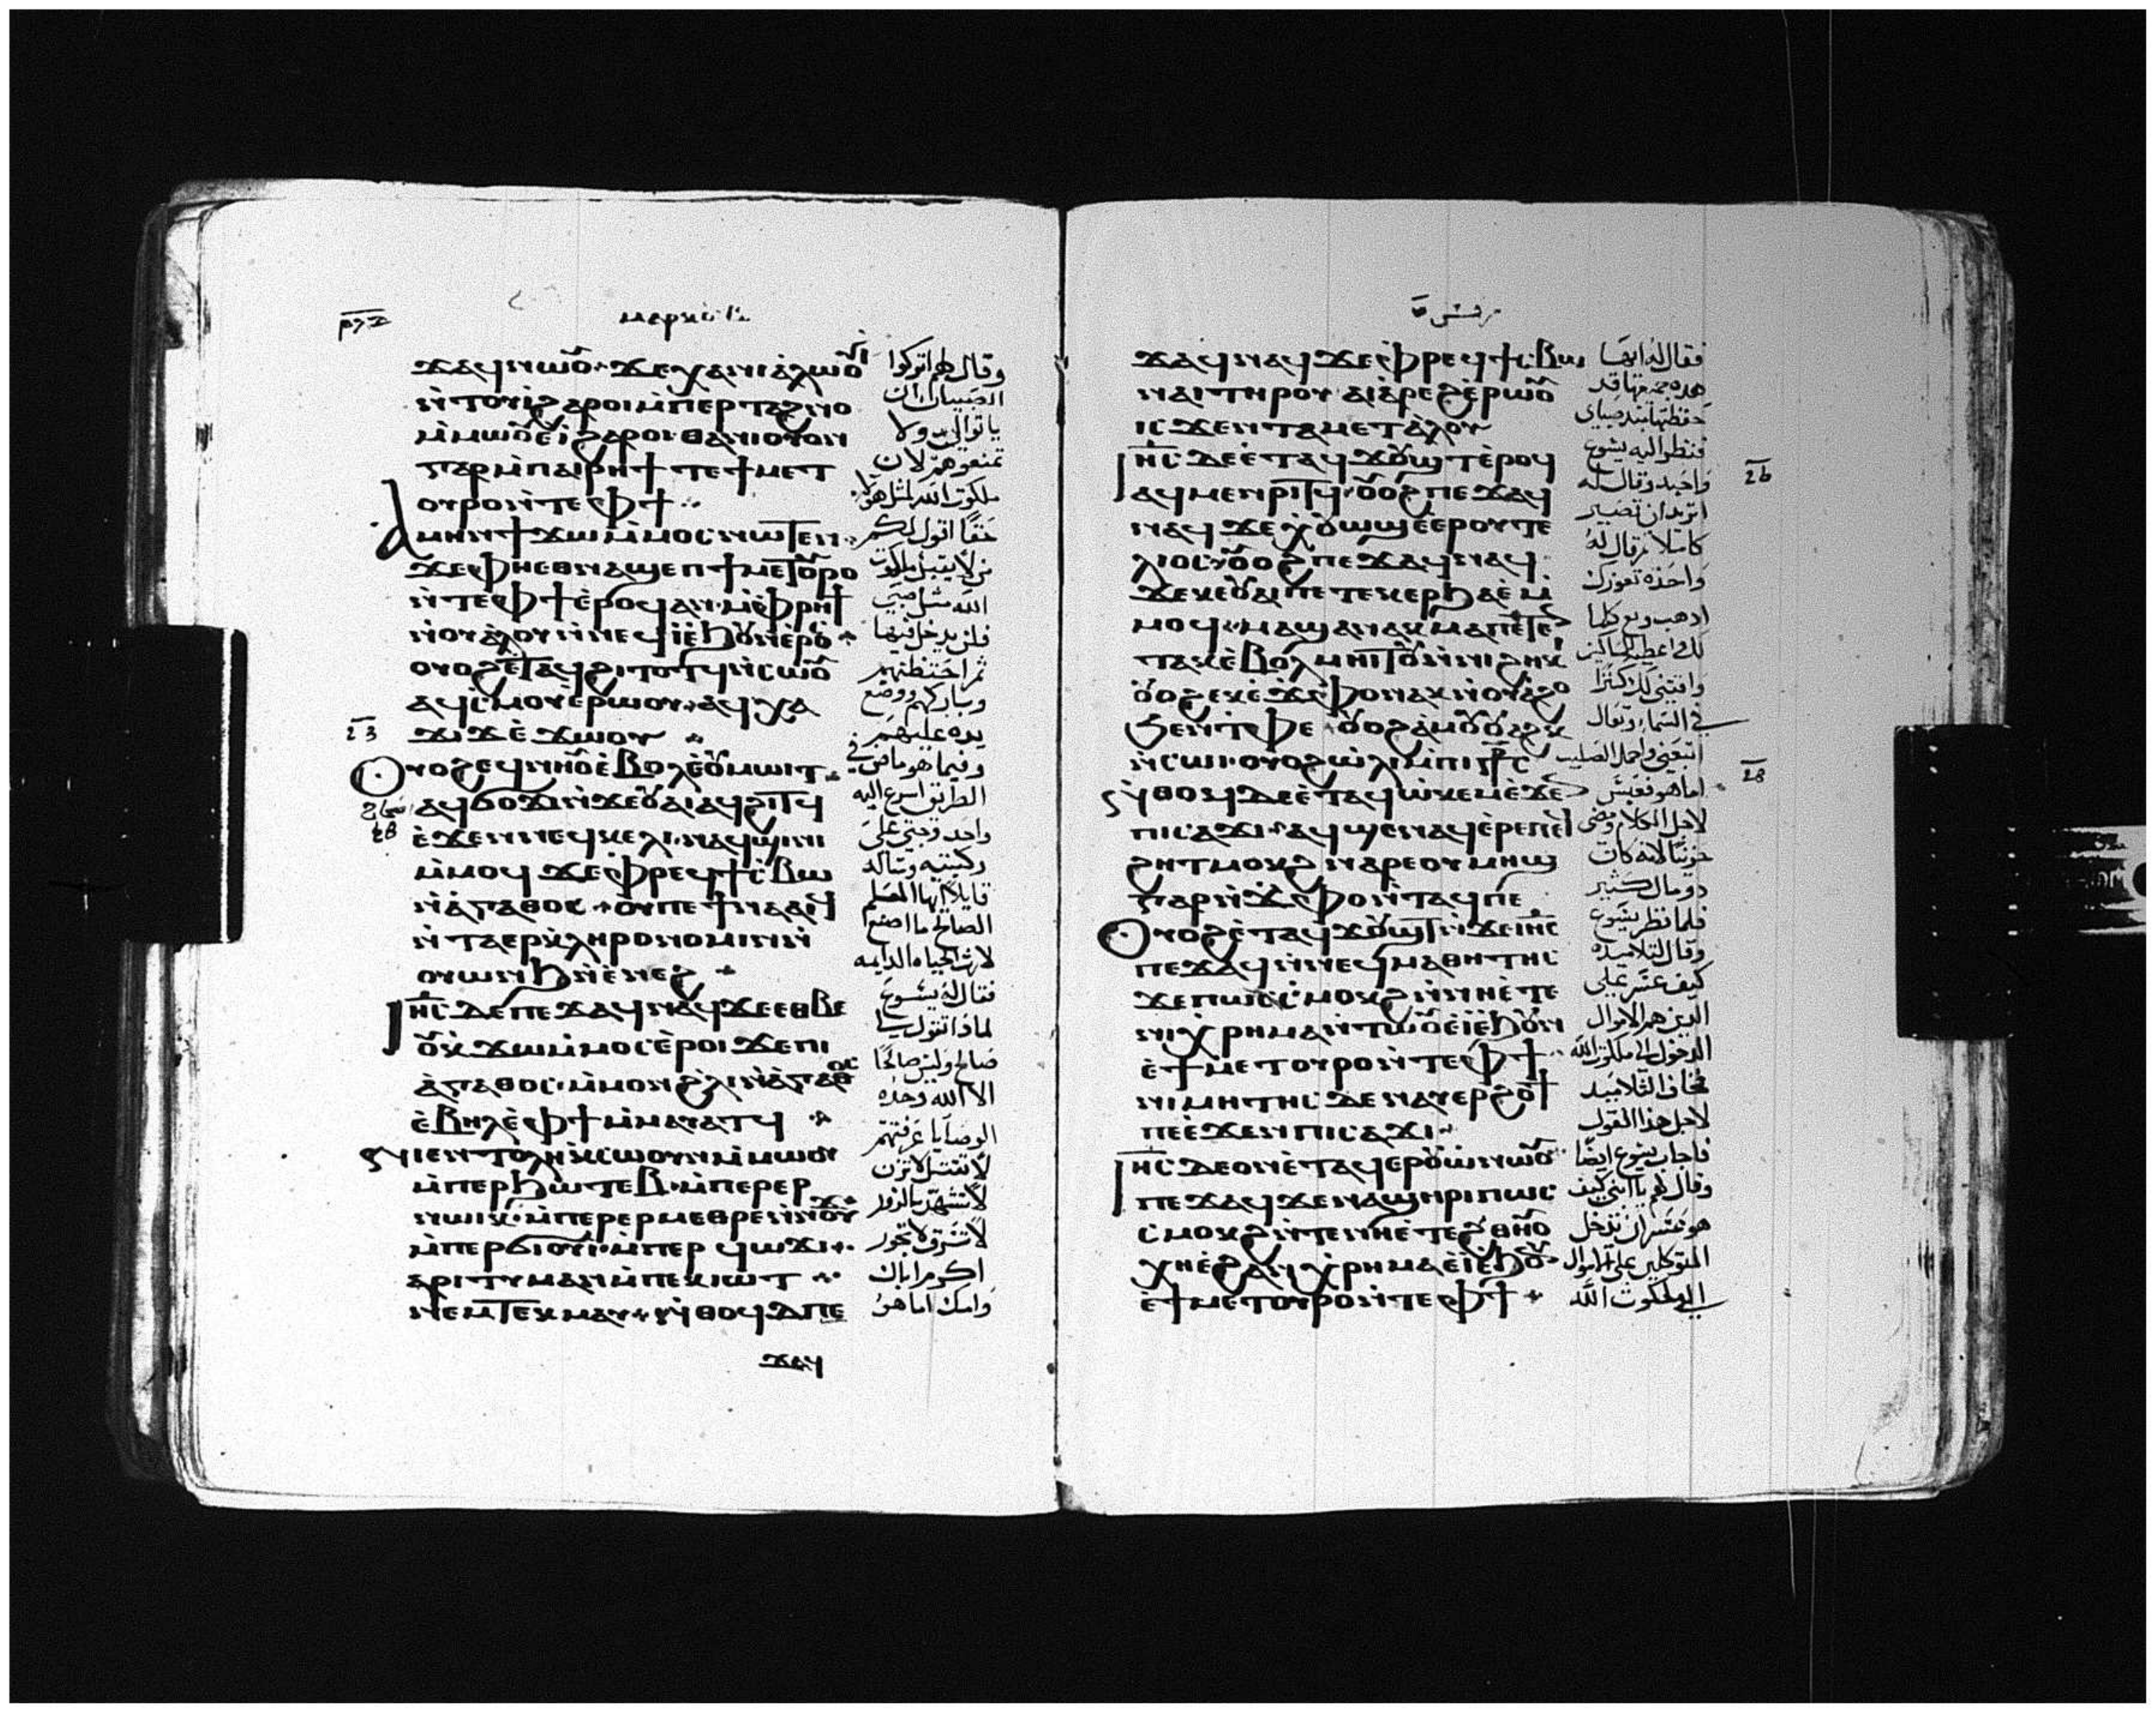 ⲙⲁⲣⲕⲟⲥ
ϫⲁϥ ⲛⲱⲟⲩ ϫⲉ ⲭⲁ ⲛⲓⲁⲗⲱⲟⲩⲓ
ⲛ̀ⲧⲟⲩⲓ̀ ϩⲁⲣⲟⲓ ⲙ̀ⲡⲉⲣⲧⲁϩⲛⲟ
ⲙ̀ⲙⲱⲟⲩ ⲉⲓ̀ ϩⲁⲣⲟⲓ ⲑⲁ ⲛⲓⲟⲩⲟⲛ
ⲅⲁⲣ ⲙ̀ⲡⲁⲓⲣⲏϯ ⲧⲉ ϯⲙⲉⲧ
ⲟⲩⲣⲟ ⲛ̀ⲧⲉ ⲫϯ
Ⲁⲙⲏⲛ ϯϫⲱ ⲙ̀ⲙⲟⲥ ⲛⲱⲧⲉⲛ
ϫⲉ ⲫⲏ ⲉⲑⲛⲁϣⲉⲡ ϯⲙⲉⲧⲟⲩⲣⲟ
ⲛ̀ⲧⲉ ⲫϯ ⲉ̀ⲣⲟϥ ⲁⲛ ⲙ̀ⲫⲣⲏϯ
ⲛ̀ⲟⲩⲁ̀ⲗⲟⲩ ⲛ̀ⲛⲉϥⲓ̀ ⲉ̀ϧⲟⲩⲛ ⲉ̀ⲣⲟⲥ
ⲟⲩⲟϩ ⲉⲧⲁϥϩⲓⲧⲟⲧϥ ⲛ̀ⲥⲱⲟⲩ
ⲁϥⲥ̀ⲙⲟⲩ ⲉ̀ⲣⲱⲟⲩ ⲁϥⲭⲁ
ϫⲓϫ ⲉ̀ϫⲱⲟⲩ
Ⲟⲩⲟϩ ⲉϥⲛⲏⲟⲩ ⲉ̀ⲃⲟⲗ ⲉ̀ⲟⲩⲙⲱⲓⲧ
ⲁϥϭⲟϫⲓ ⲛ̀ϫⲉ ⲟⲩⲁⲓ ⲁϥϩⲓⲧϥ
ⲉ̀ϫⲉⲛ ⲛⲉϥⲕⲉⲗⲓ ⲛⲁϥϣⲓⲛⲓ
ⲙ̀ⲙⲟϥ ϫⲉ ⲫⲣⲉϥϯⲥ̀ⲃⲱ
ⲛ̀ⲁ̀ⲅⲁⲑⲟⲥ ⲟⲩ ⲡⲉϯⲛⲁⲁⲓϥ
ⲛ̀ⲧⲁⲉⲣⲕ̀ⲗⲏⲣⲟⲛⲟⲙⲓⲛ ⲛ̀
ⲟⲩⲱⲛϧ ⲛ̀ⲉ̀ⲛⲉϩ
Ⲓⲏ̅ⲥ̅ ⲇⲉ ⲡⲉϫⲁϥ ⲛⲁϥ ϫⲉ ⲉⲑⲃⲉ
ⲟⲩ ⲕ̀ϫⲱ ⲙ̀ⲙⲟⲥ ⲉ̀ⲣⲟⲓ ϫⲉ ⲡⲓ
ⲁ̀ⲅⲁⲑⲟⲥ ⲙ̀ⲙⲟⲛ ϩ̀ⲗⲓ ⲛ̀ⲁ̀ⲅⲁⲑⲟⲥ
ⲉ̀ⲃⲏⲗ ⲉ̀ⲫϯ ⲙ̀ⲙⲁⲩⲁⲧϥ
ⲛⲓⲉⲛⲧⲟⲗⲏ ⲕ̀ⲥⲱⲟⲩⲛ ⲙ̀ⲙⲱⲟⲩ
ⲙ̀ⲡⲉⲣϧⲱⲧⲉⲃ ⲙ̀ⲡⲉⲣⲉⲣ
ⲛⲱⲓⲕ ⲙ̀ⲡⲉⲣⲉⲣⲙⲉⲑⲣⲉ ⲛ̀ⲛⲟⲩϫ
ⲙ̀ⲡⲉⲣϭⲓⲟⲩⲓ ⲙ̀ⲡⲉⲣϥⲱϫⲓ
ⲁⲣⲓⲧⲓⲙⲁⲛ ⲙ̀ⲡⲉⲕⲓⲱⲧ
ⲛⲉⲙ ⲧⲉⲕⲙⲁⲩ ⲛ̀ⲑⲟϥ ⲇⲉ ⲡⲉ
ϫⲁϥ
وقال لهم اتركوا
الصبيان ان
ياتوا الي ولا
تمنعوهم لان
ملكوت الله لمثل هولا
حقا اقول لكم
من لا يقبل ملكوت
الله مثل صبي
فلن يدخل فيها
ثم احتضنهم
وباركهم ووضع
يده عليهم
وفيما هو ماض في
الطريق اسرع اليه
واحد وجثي علي
ركبتيه وساله
قايلا ايها المعلم
الصالح ما اصنع
لارث الحياه الدايمه
فقال له يسوع
لماذا تقول لي
صالح وليس صالحا
الا الله وحده
الوصايا عرفتهم
لا تقتل لا تزن
لا تشهد بالزور
لا تسرق لا تجور
اكرم اباك
وامك اما هو
مرقس
ϫⲁϥ ⲛⲁϥ ϫⲉ ⲫⲣⲉϥϯⲥ̀ⲃⲱ
ⲛⲁⲓ ⲧⲏⲣⲟⲩ ⲁⲓⲁ̀ⲣⲉϩ ⲉ̀ⲣⲱⲟⲩ
ⲓⲥϫⲉⲛ ⲧⲁⲙⲉⲧⲁ̀ⲗⲟⲩ
Ⲓⲏ̅ⲥ̅ ⲇⲉ ⲉ̀ⲧⲁϥϫⲟⲩϣⲧ ⲉ̀ⲣⲟϥ
ⲁϥⲙⲉⲛⲣⲓⲧϥ ⲟⲩⲟϩ ⲡⲉϫⲁϥ
ⲛⲁϥ ϫⲉ ⲭ̀ⲟⲩⲱϣ ⲉ̀ⲉⲣⲟⲩⲧⲉ
ⲗⲓⲟⲥ ⲟⲩⲟϩ ⲡⲉϫⲁϥ ⲛⲁϥ
ϫⲉ ⲕⲉⲟⲩⲁⲓ ⲡⲉⲧⲉⲕⲉⲣϧⲁⲉ̀ ⲙ̀
ⲙⲟϥ ⲙⲁϣⲉⲛⲁⲕ ⲙⲁ ⲡⲉⲧⲉⲛ
ⲧⲁⲕ ⲉ̀ⲃⲟⲗ ⲙⲏⲓⲧⲟⲩ ⲛ̀ⲛⲓϩⲏⲕⲓ
ⲟⲩⲟϩ ⲉⲕⲉ̀ϫ̀ⲫⲟ ⲛⲁⲕ ⲛ̀ⲟⲩⲁϩⲟ
ϧⲉⲛ ⲧ̀ⲫⲉ ⲟⲩⲟϩ ⲁ̀ⲙⲟⲩ ⲟⲩⲁϩⲕ
ⲛ̀ⲥⲱⲓ ⲟⲩⲟϩ ⲱ̀ⲗⲓ ⲙ̀ⲡⲓⲥ̅ⲧ̅ⲣ̅ⲥ̅
ⲛ̀ⲑⲟϥ ⲇⲉ ⲉ̀ⲧⲁϥⲱ̀ⲕⲉⲙ ⲉ̀ϫⲉⲛ
ⲡⲓⲥⲁϫⲓ ⲁϥϣⲉⲛⲁϥ ⲉ̀ⲣⲉ ⲡⲉϥ
ϩⲏⲧ ⲙⲟⲕϩ ⲛⲁⲣⲉ ⲟⲩⲙⲏϣ
ⲅⲁⲣ ⲛ̀ϫ̀ⲫⲟ ⲛ̀ⲧⲁϥ ⲡⲉ
Ⲟⲩⲟϩ ⲉ̀ⲧⲁϥϫⲟⲩϣⲧ ⲛ̀ϫⲉ ⲓⲏ̅ⲥ̅
ⲡⲉϫⲁϥ ⲛ̀ⲛⲉϥⲙⲁⲑⲏⲧⲏⲥ
ϫⲉ ⲡⲱⲥ ⲥ̀ⲙⲟⲕϩ ⲛ̀ⲛⲏ ⲉ̀ⲧⲉ
ⲛⲓⲭ̀ⲣⲏⲙⲁ ⲛ̀ⲧⲱⲟⲩ ⲉ̀ⲓ̀ ⲉ̀ϧⲟⲩⲛ
ⲉ̀ϯⲙⲉⲧⲟⲩⲣⲟ ⲛ̀ⲧⲉ ⲫϯ
ⲛⲓⲙⲏⲧⲏⲥ ⲇⲉ ⲛⲁⲩⲉⲣϩⲟϯ
ⲡⲉ ⲉ̀ϫⲉⲛ ⲡⲓⲥⲁϫⲓ
Ⲓⲏ̅ⲥ̅ ⲇⲉ ⲟⲛ ⲉ̀ⲧⲁϥⲉⲣⲟⲩⲱ̀ ⲛⲱⲟⲩ
ⲡⲉϫⲁϥ ϫⲉ ⲛⲁϣⲏⲣⲓ ⲡⲱⲥ
ⲥ̀ⲙⲟⲕϩ ⲛ̀ⲧⲉ ⲛⲏ ⲉ̀ⲧⲉ ϩ̀ⲑⲏⲟⲩ
ⲭⲏ ⲉ̀ϩⲁⲛⲭ̀ⲣⲏⲙⲁ ⲉ̀ⲓ̀ ⲉ̀ϧⲟⲩⲛ
ⲉ̀ϯⲙⲉⲧⲟⲩⲣⲟ ⲛ̀ⲧⲉ ⲫϯ
فقال له ايها
هذه جميعها قد
حفظتها منذ صباي
فنظر اليه يسوع
واحبه وقال له
اتريد ان تصير
كاملا وقال له
واحده تعوزك
اذهب وبع كلما
لك واعطيه للمساكين
واقتني لك كنزا
في السماء وتعال
اتبعني واحمل الصليب
اما هو فعبس
لاجل الكلام ومضي
حزينا لانه كان
ذو مال كثير
فلما نظر يسوع
وقال لتلاميذه
كيف عسر علي
الذين لهم الاموال
الدخول الي ملكوت الله
فخاف التلاميذ
لاجل هذا القول
فاجاب يسوع ايضا
وقال لهم يا ابني كيف
هو عسر ان يدخل
المتوكلين علي الاموال
الي ملكوت الله